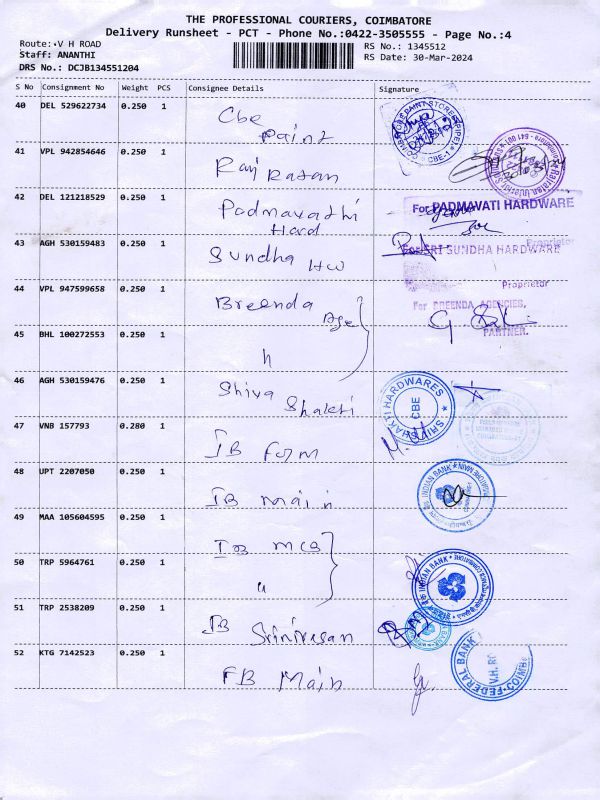 THE PROFESSIONAL COURIERS, COIMBATORE
Delivery Runsheet - PCT - Phone No.:0422-3505555 - Page No.:4
Route: V H ROAD
Staff: ANANTHI
DRS No.: DCJB134551204
RS No.: 1345512
RS Date: 30-Mar-2024
S No Consignment No Weight PCS Consignee Details Signature
40 DEL 529622734 0.250 1 Cbe Paint
41 VPL 942854646 0.250 1 Raj Ratan
42 DEL 121218529 0.250 1 Padmavathi Hard
For PADMAVATI HARDWARE
Proprietor
43 AGH 530159483 0.250 1 Sundha HW
For SRI SUNDHA HARDWARE
Proprietor
44 VPL 947599658 0.250 1 Breenda Age
For BREENDA AGENCIES,
PARTNER.
45 BHL 100272553 0.250 1 "
46 AGH 530159476 0.250 1 Shiva Shakti
SHIVSHAKTI HARDWARES
CBE
47 VNB 157793 0.280 1 IB Form
48 UPT 2207050 0.250 1 IB Main
INDIAN BANK
49 MAA 105604595 0.250 1 IOB MCB
50 TRP 5964761 0.250 1 "
INDIAN BANK
51 TRP 2538209 0.250 1 IB Srinivasan
52 KTG 7142523 0.250 1 FB Main
FEDERAL BANK
V.H. RO